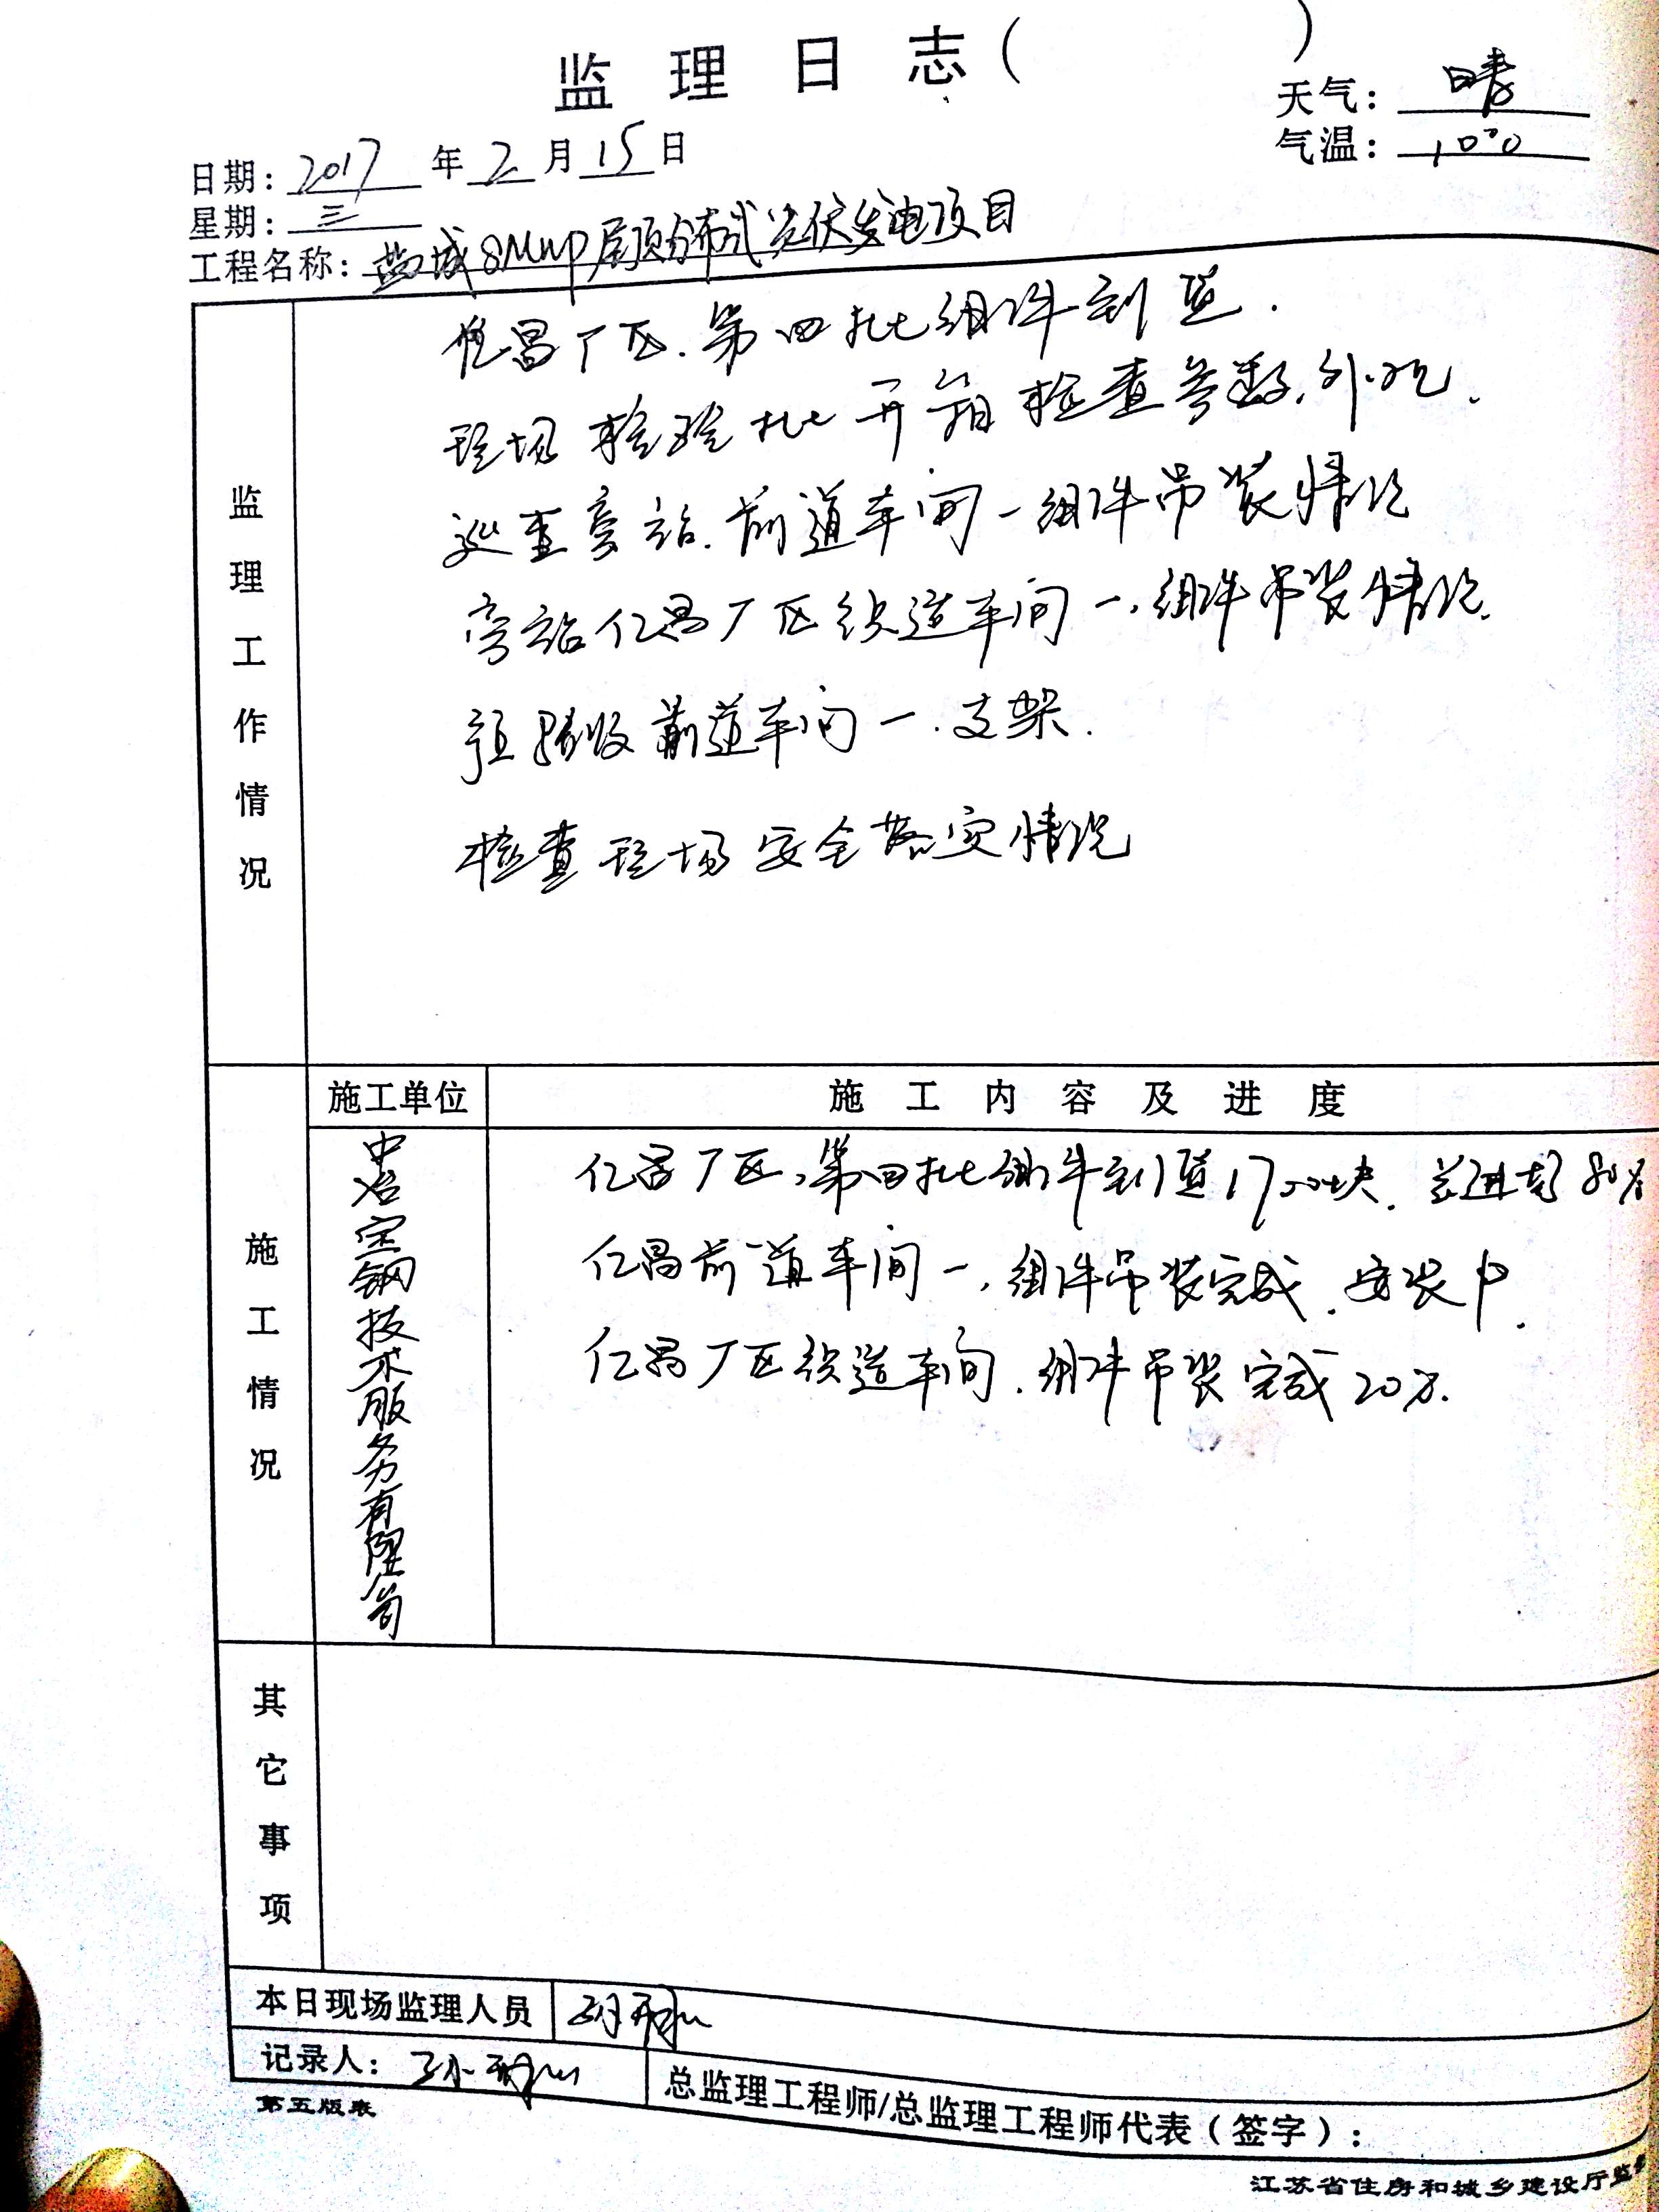 监理日志（ ）
天气：晴
气温：10℃
日期：2017年2月15日
星期：三
工程名称：盐城8MWp屋顶分布式光伏发电项目
监理工作情况
亿昌厂区.第四批组件到货.
现场检验批开箱检查参数.外观.
巡查旁站.前道车间一组件吊装情况
旁站亿昌厂区织造车间一.组件吊装情况.
验收前道车间一.支架.
检查现场安全落实情况
施工单位 施工内容及进度
施工情况
中冶宝钢技术服务有限公司
亿昌厂区,第四批组件到货1700块.总进度80%
亿昌前道车间一,组件吊装完成.安装中.
亿昌厂区织造车间.组件吊装完成20%.
其它事项
本日现场监理人员
记录人：
总监理工程师/总监理工程师代表（签字）：
第五版表
江苏省住房和城乡建设厅监